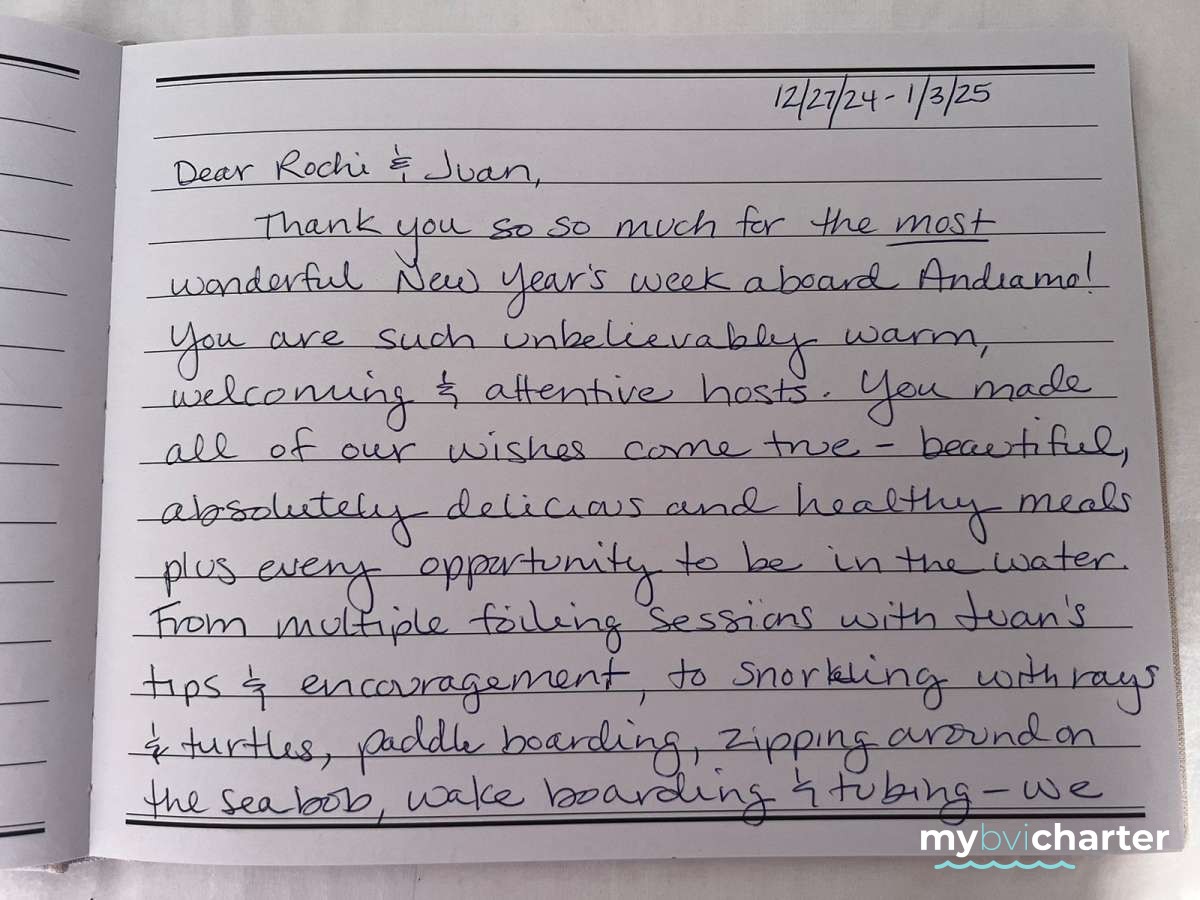 12/27/24 - 1/3/25
Dear Rochi & Juan,
Thank you so so much for the most
wonderful New Year's week aboard Andiamo!
You are such unbelievably warm,
welcoming & attentive hosts. You made
all of our wishes come true - beautiful,
absolutely delicious and healthy meals
plus every opportunity to be in the water.
From multiple foiling sessions with Juan's
tips & encouragement, to snorkling with rays
& turtles, paddle boarding, zipping around on
the sea bob, wake boarding & tubing - we
mybvicharter